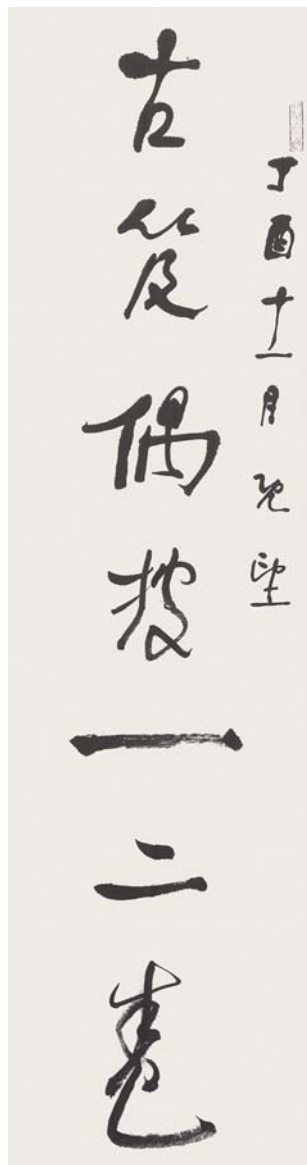 丁酉十一月既望
古笈偶披一二卷